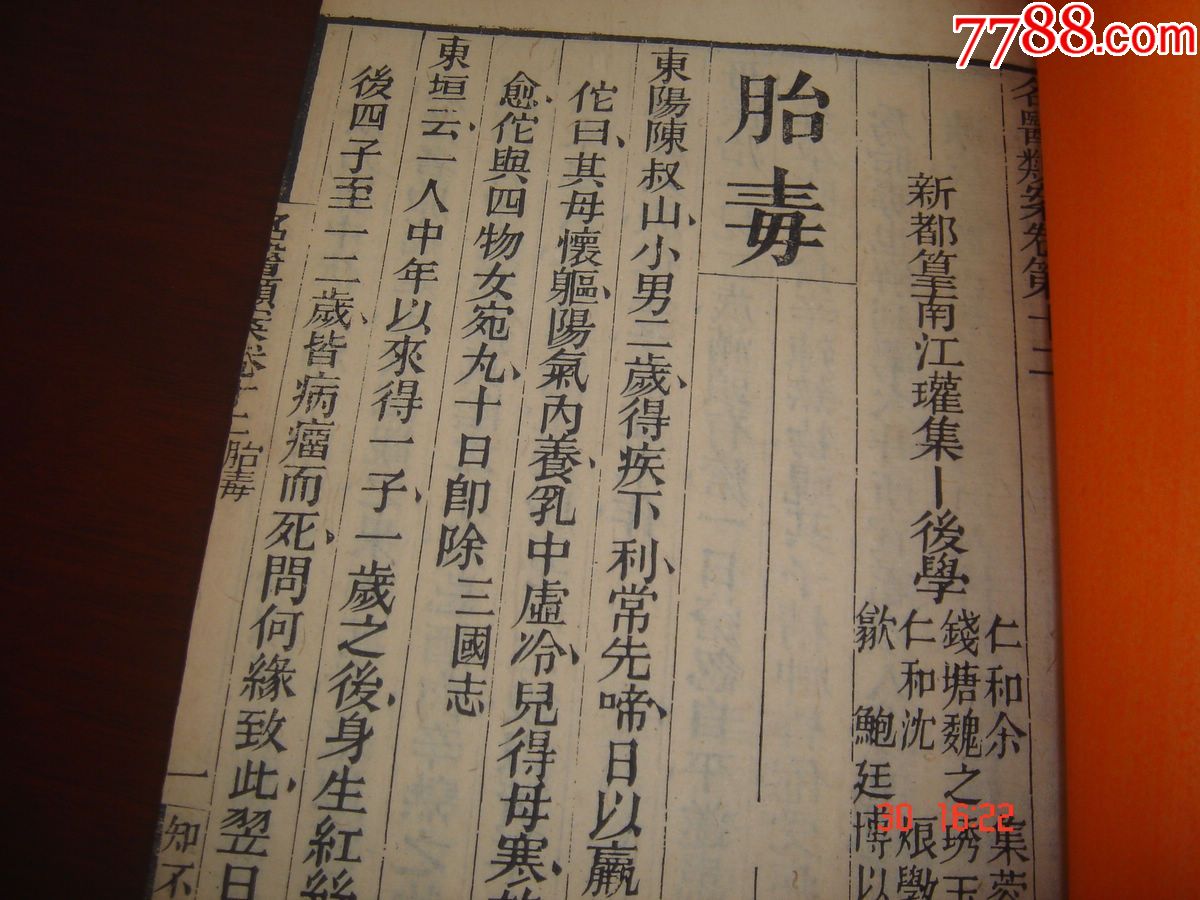 7788.com
名醫類案卷第十二
新都篁南江瓘集 後學
仁和余 集蓉
錢塘魏之琇玉
仁和沈 烺
歙 鮑廷博以
胎毒
東陽陳叔山小男二歲得疾下利常先啼日以羸
佗曰其母懷軀陽氣內養乳中虛冷兒得母寒故
愈佗與四物女宛丸十日卽除三國志
東垣云一人中年以來得一子一歲之後身生紅絲
後四子至一二歲皆病瘤而死問何緣致此翌日
名醫類案卷十二 胎毒
一
知不
30 16:22